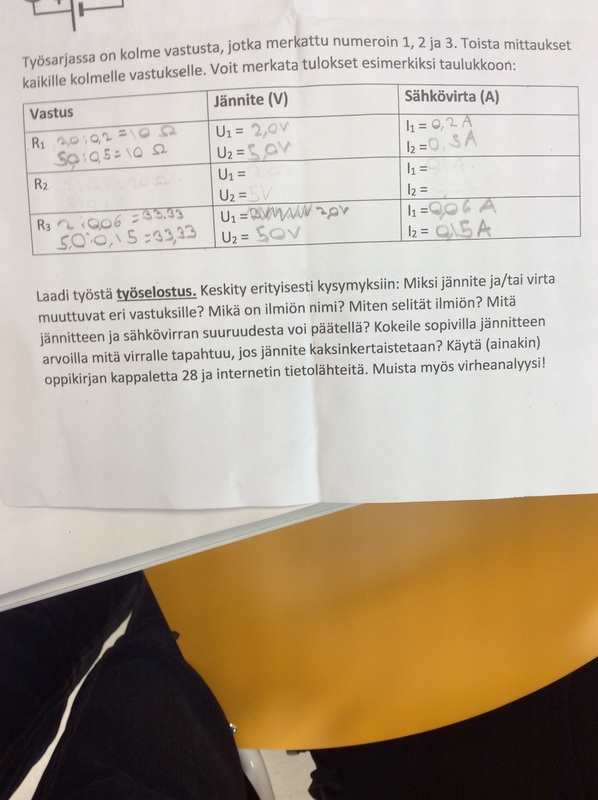 Työsarjassa on kolme vastusta, jotka merkattu numeroin 1, 2 ja 3. Toista mittaukset
kaikille kolmelle vastukselle. Voit merkata tulokset esimerkiksi taulukkoon:
Vastus Jännite (V) Sähkövirta (A)
R1 2,0:0,2=10 Ω U1 = 2,0V I1 = 0,2A
5,0:0,5=10 Ω U2 = 5,0V I2 = 0,5A
R2 U1 = I1 =
U2 = 5V I2 =
R3 2:0,06=33,33 U1 = 2,0V I1 = 0,06 A
5,0:0,15=33,33 U2 = 5,0V I2 = 0,15A
Laadi työstä työselostus. Keskity erityisesti kysymyksiin: Miksi jännite ja/tai virta
muuttuvat eri vastuksille? Mikä on ilmiön nimi? Miten selität ilmiön? Mitä
jännitteen ja sähkövirran suuruudesta voi päätellä? Kokeile sopivilla jännitteen
arvoilla mitä virralle tapahtuu, jos jännite kaksinkertaistetaan? Käytä (ainakin)
oppikirjan kappaletta 28 ja internetin tietolähteitä. Muista myös virheanalyysi!